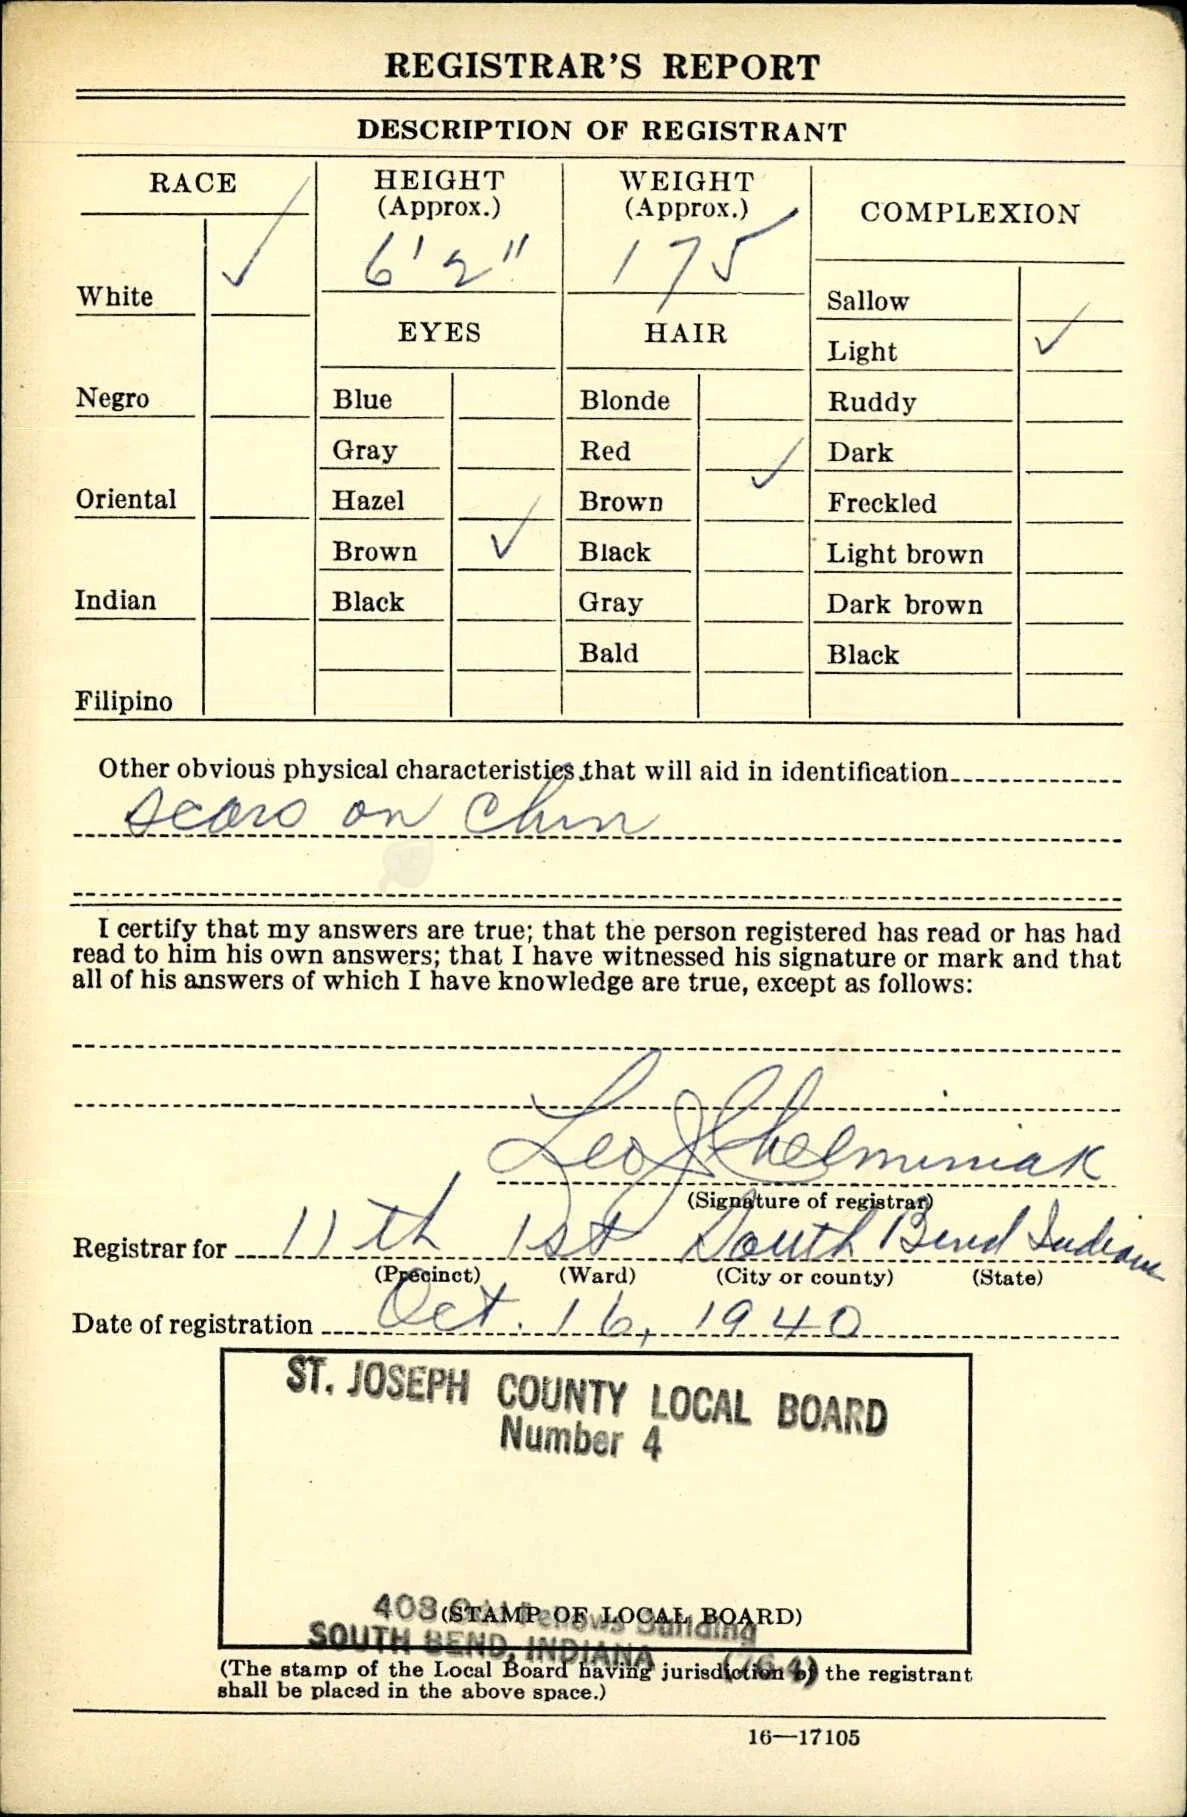 REGISTRAR'S REPORT
DESCRIPTION OF REGISTRANT
RACE
HEIGHT
(Approx.)
WEIGHT
(Approx.)
COMPLEXION
6' 2"
175
White ✓
EYES
HAIR
Sallow
Light ✓
Negro
Blue
Blonde
Ruddy
Gray
Red
Dark
Oriental
Hazel
Brown ✓
Freckled
Brown ✓
Black
Light brown
Indian
Black
Gray
Dark brown
Bald
Black
Filipino
Other obvious physical characteristics that will aid in identification
scars on chin
I certify that my answers are true; that the person registered has read or has had
read to him his own answers; that I have witnessed his signature or mark and that
all of his answers of which I have knowledge are true, except as follows:
Leo J Chelminiak
(Signature of registrar)
Registrar for 11th 1st South Bend Indiana
(Precinct) (Ward) (City or county) (State)
Date of registration Oct. 16, 1940
ST. JOSEPH COUNTY LOCAL BOARD
Number 4
408 Odd Fellows Building
(STAMP OF LOCAL BOARD)
SOUTH BEND, INDIANA (764)
(The stamp of the Local Board having jurisdiction of the registrant
shall be placed in the above space.)
16—17105